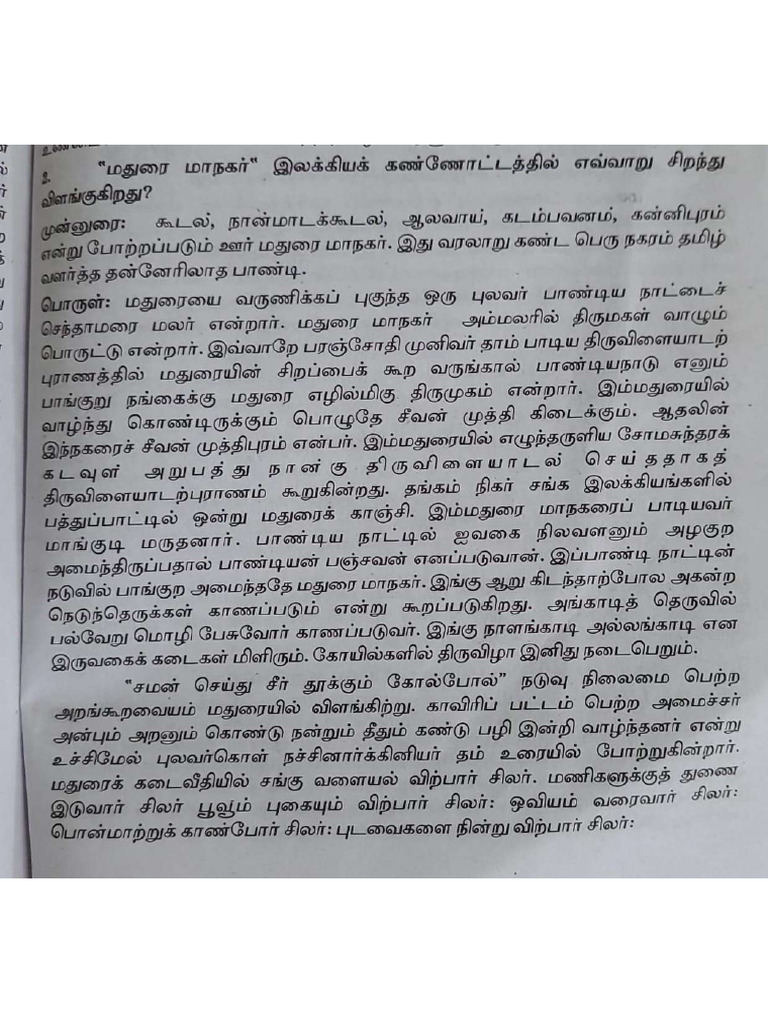 2. "மதுரை மாநகர்" இலக்கியக் கண்ணோட்டத்தில் எவ்வாறு சிறந்து
விளங்குகிறது?
முன்னுரை: கூடல், நான்மாடக்கூடல், ஆலவாய், கடம்பவனம், கன்னிபுரம்
என்று போற்றப்படும் ஊர் மதுரை மாநகர். இது வரலாறு கண்ட பெரு நகரம் தமிழ்
வளர்த்த தன்னேரிலாத பாண்டி.
பொருள்: மதுரையை வருணிக்கப் புகுந்த ஒரு புலவர் பாண்டிய நாட்டைச்
செந்தாமரை மலர் என்றார். மதுரை மாநகர் அம்மலரில் திருமகள் வாழும்
பொருட்டு என்றார். இவ்வாறே பரஞ்சோதி முனிவர் தாம் பாடிய திருவிளையாடற்
புராணத்தில் மதுரையின் சிறப்பைக் கூற வருங்கால் பாண்டியநாடு எனும்
பாங்குறு நங்கைக்கு மதுரை எழில்மிகு திருமுகம் என்றார். இம்மதுரையில்
வாழ்ந்து கொண்டிருக்கும் பொழுதே சீவன் முத்தி கிடைக்கும். ஆதலின்
இந்நகரைச் சீவன் முத்திபுரம் என்பர். இம்மதுரையில் எழுந்தருளிய சோமசுந்தரக்
கடவுள் அறுபத்து நான்கு திருவிளையாடல் செய்ததாகத்
திருவிளையாடற்புராணம் கூறுகின்றது. தங்கம் நிகர் சங்க இலக்கியங்களில்
பத்துப்பாட்டில் ஒன்று மதுரைக் காஞ்சி. இம்மதுரை மாநகரைப் பாடியவர்
மாங்குடி மருதனார். பாண்டிய நாட்டில் ஐவகை நிலவளனும் அழகுற
அமைந்திருப்பதால் பாண்டியன் பஞ்சவன் எனப்படுவான். இப்பாண்டி நாட்டின்
நடுவில் பாங்குற அமைந்ததே மதுரை மாநகர். இங்கு ஆறு கிடந்தாற்போல அகன்ற
நெடுந்தெருக்கள் காணப்படும் என்று கூறப்படுகிறது. அங்காடித் தெருவில்
பல்வேறு மொழி பேசுவோர் காணப்படுவர். இங்கு நாளங்காடி அல்லங்காடி என
இருவகைக் கடைகள் மிளிரும். கோயில்களில் திருவிழா இனிது நடைபெறும்.
"சமன் செய்து சீர் தூக்கும் கோல்போல்" நடுவு நிலைமை பெற்ற
அறங்கூறவையம் மதுரையில் விளங்கிற்று. காவிரிப் பட்டம் பெற்ற அமைச்சர்
அன்பும் அறனும் கொண்டு நன்றும் தீதும் கண்டு பழி இன்றி வாழ்ந்தனர் என்று
உச்சிமேல் புலவர்கொள் நச்சினார்க்கினியர் தம் உரையில் போற்றுகின்றார்.
மதுரைக் கடைவீதியில் சங்கு வளையல் விற்பார் சிலர். மணிகளுக்குத் துணை
இடுவார் சிலர் பூவும் புகையும் விற்பார் சிலர்: ஒவியம் வரைவார் சிலர்:
பொன்மாற்றுக் காண்போர் சிலர்: புடவைகளை நின்று விற்பார் சிலர்: